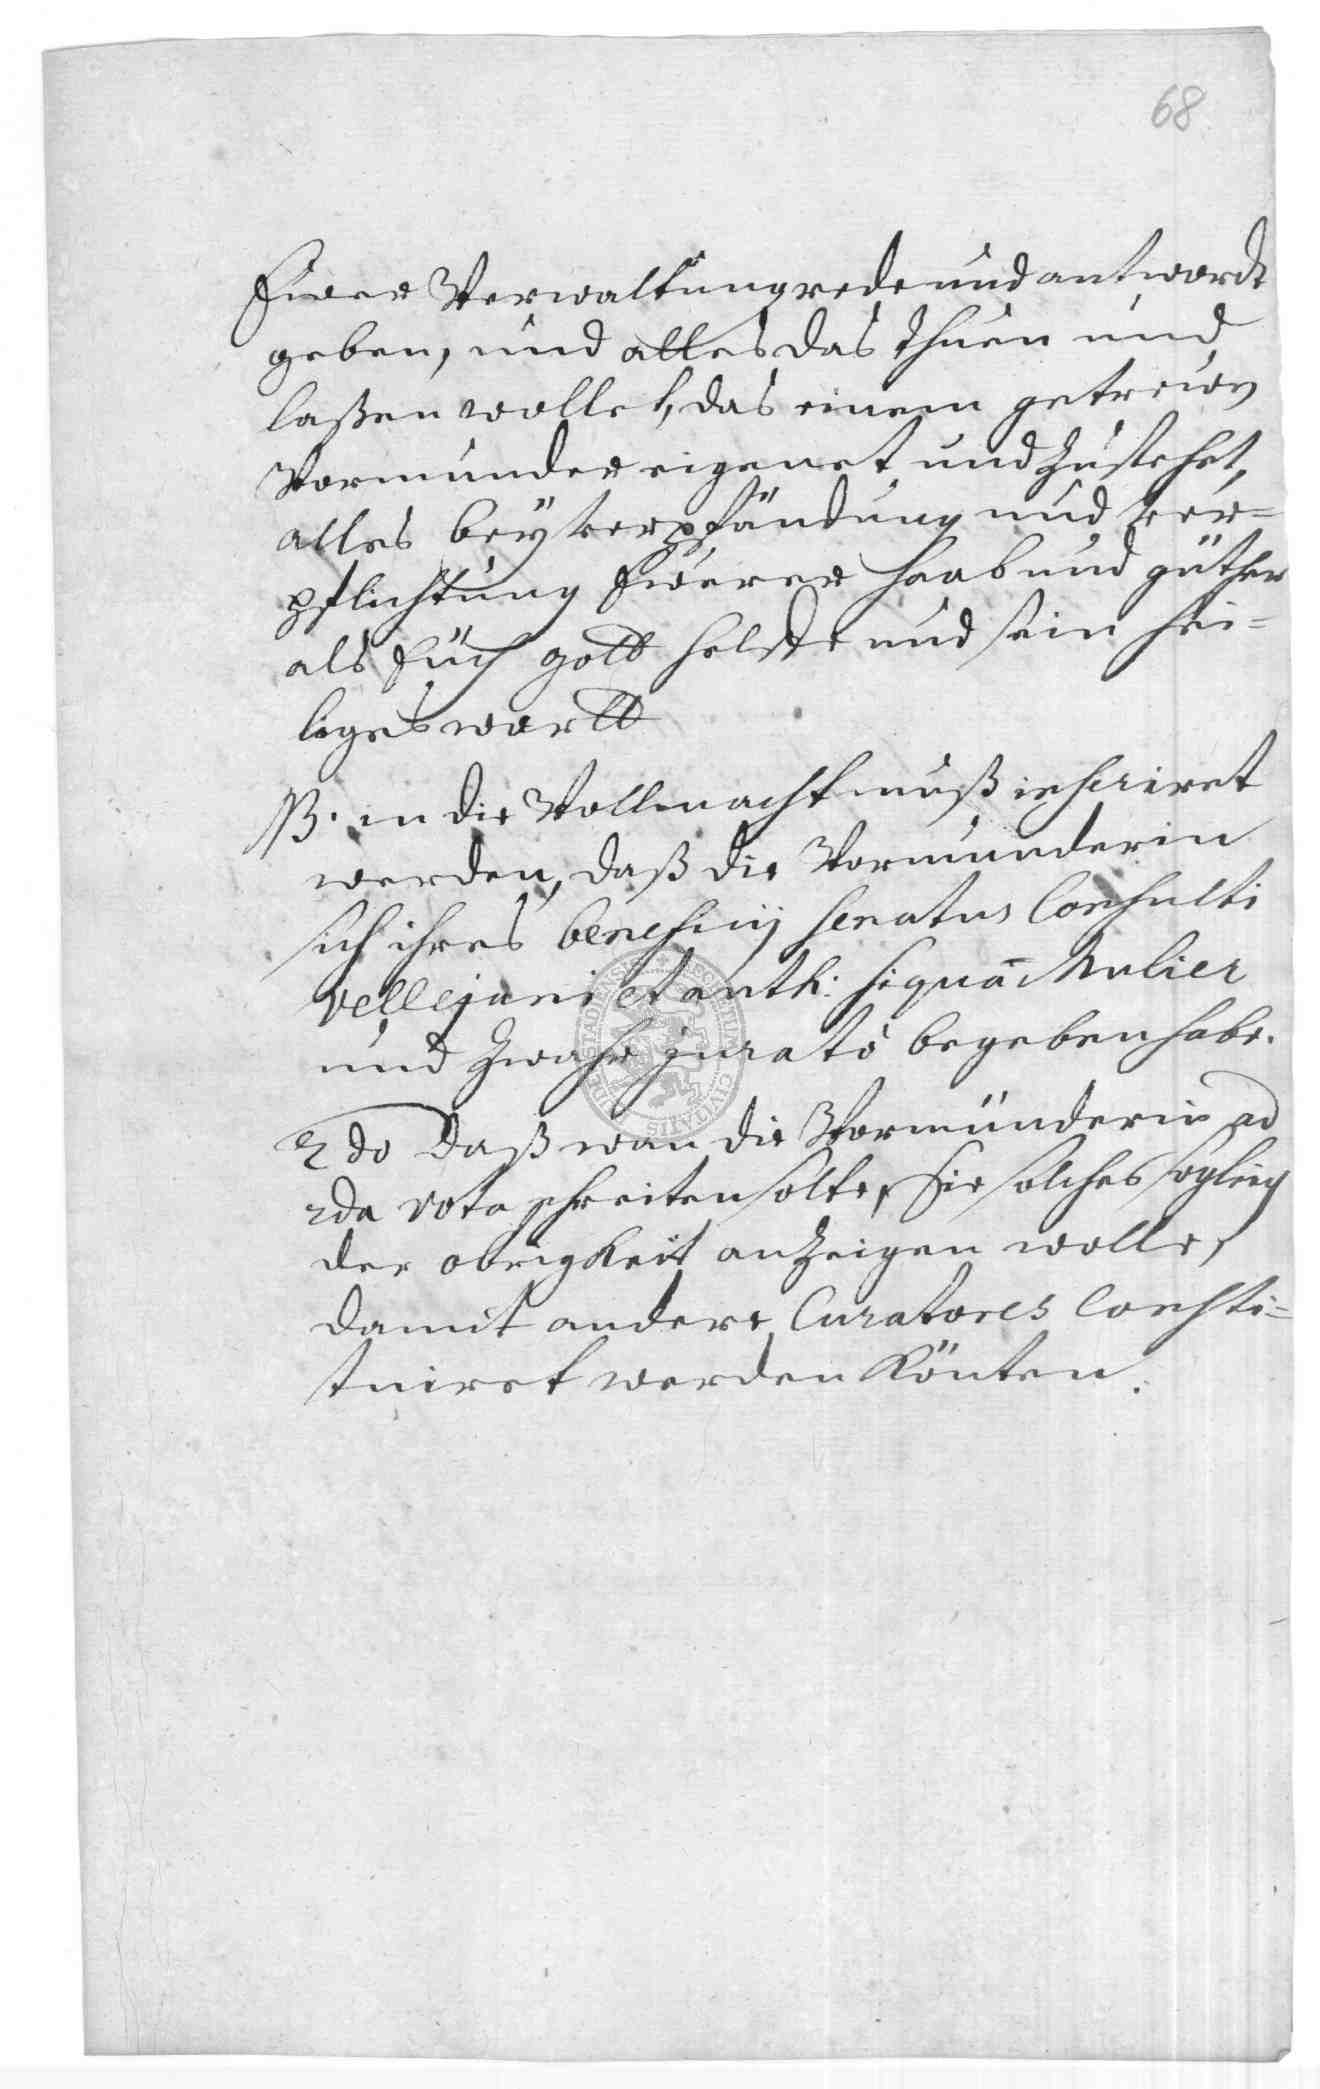 68
Ewer Verwaltung rede und antwordt
geben, und alles das thuen und
laßen wollet, das einem getrewen
Vormunder eigenet und zustehet,
alles bey verpfändung und ver=
pflichtung Ewerer haab und güther
als Euch gott helffe und sein hei=
liges wortt
NB. in die Vollmacht muß inseriret
werden, daß die Vormunderin
sich ihres beneficij Senatus Consulti
Vellejani et auth: si qua Mulier
und zwahr jurato begeben habe.
2do Daß wan die Vormünderin ad
2da vota schreiten solte, Sie solches sogleich
der obrigkeit anzeigen wolle,
damit andere Curatores Consti=
tuiret werden könten.